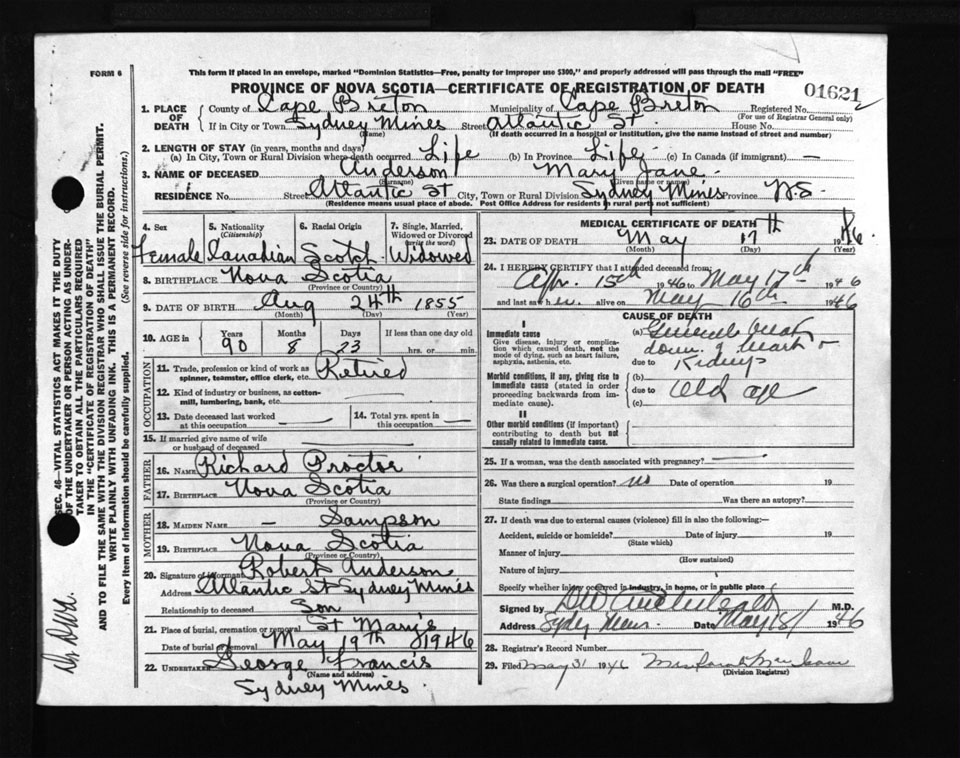 FORM 6
This form if placed in an envelope, marked "Dominion Statistics—Free, penalty for improper use $300," and properly addressed will pass through the mail "FREE"
PROVINCE OF NOVA SCOTIA—CERTIFICATE OF REGISTRATION OF DEATH
01621
1. PLACE OF DEATH County of Cape Breton Municipality of Cape Breton Registered No.
(For use of Registrar General only)
If in City or Town Sydney Mines Street Atlantic St. House No.
(Name) (If death occurred in a hospital or institution, give the name instead of street and number)
2. LENGTH OF STAY (in years, months and days)
(a) In City, Town or Rural Division where death occurred Life (b) In Province Life (c) In Canada (if immigrant) —
3. NAME OF DECEASED Anderson Mary Jane
(Surname) (Given name or names)
RESIDENCE No. Street Atlantic St City, Town or Rural Division Sydney Mines Province N.S.
(Residence means usual place of abode. Post Office Address for residents in rural parts not sufficient)
4. Sex 5. Nationality (Citizenship) 6. Racial Origin 7. Single, Married, Widowed or Divorced (using the word)
Female Canadian Scotch Widowed
8. BIRTHPLACE Nova Scotia
(Province or Country)
9. DATE OF BIRTH Aug 24th 1855
(Month) (Day) (Year)
10. AGE in Years Months Days If less than one day old
90 8 23 hrs. or min.
OCCUPATION
11. Trade, profession or kind of work as spinner, teamster, office clerk, etc. Retired
12. Kind of industry or business, as cotton-mill, lumbering, bank, etc.
13. Date deceased last worked at this occupation
14. Total yrs. spent in this occupation
15. If married give name of wife or husband of deceased
FATHER
16. NAME Richard Procter
17. BIRTHPLACE Nova Scotia
(Province or Country)
MOTHER
18. MAIDEN NAME — Sampson
19. BIRTHPLACE Nova Scotia
(Province or Country)
20. Signature of informant Robert Anderson
Address Atlantic St Sydney Mines
Relationship to deceased Son
21. Place of burial, cremation or removal St Mary's
Date of burial or removal May 19th 1946
22. UNDERTAKER George Francis
(Name and address)
Sydney Mines
MEDICAL CERTIFICATE OF DEATH
23. DATE OF DEATH May 17th 1946
(Month) (Day) (Year)
24. I HEREBY CERTIFY that I attended deceased from:
Apr. 15th 1946 to May 17th 1946
and last saw her alive on May 16th 1946
CAUSE OF DEATH
I
Immediate cause
Give disease, injury or complication which caused death, not the mode of dying, such as heart failure, asphyxia, asthenia, etc.
(a) General wear down of heart &
due to Kidneys
Morbid conditions, if any, giving rise to immediate cause (stated in order proceeding backwards from immediate cause).
(b)
due to Old age
(c)
II
Other morbid conditions (if important) contributing to death but not causally related to immediate cause.
25. If a woman, was the death associated with pregnancy?
26. Was there a surgical operation? No Date of operation 19
State findings Was there an autopsy?
27. If death was due to external causes (violence) fill in also the following:—
Accident, suicide or homicide? Date of injury 19
(State which)
Manner of injury
(How sustained)
Nature of injury
Specify whether injury occurred in industry, in home, or in public place
Signed by M.D.
Address Sydney Mines Date May 18/ 1946
28. Registrar's Record Number
29. Filed May 31 1946
(Division Registrar)
SEC. 46—VITAL STATISTICS ACT MAKES IT THE DUTY
OF THE UNDERTAKER OR PERSON ACTING AS UNDER-
TAKER TO OBTAIN ALL THE PARTICULARS REQUIRED
IN THE "CERTIFICATE OF REGISTRATION OF DEATH"
AND TO FILE THE SAME WITH THE DIVISION REGISTRAR WHO SHALL ISSUE THE BURIAL PERMIT.
WRITE PLAINLY WITH UNFADING INK. THIS IS A PERMANENT RECORD.
Every item of information should be carefully supplied. (See reverse side for instructions.)